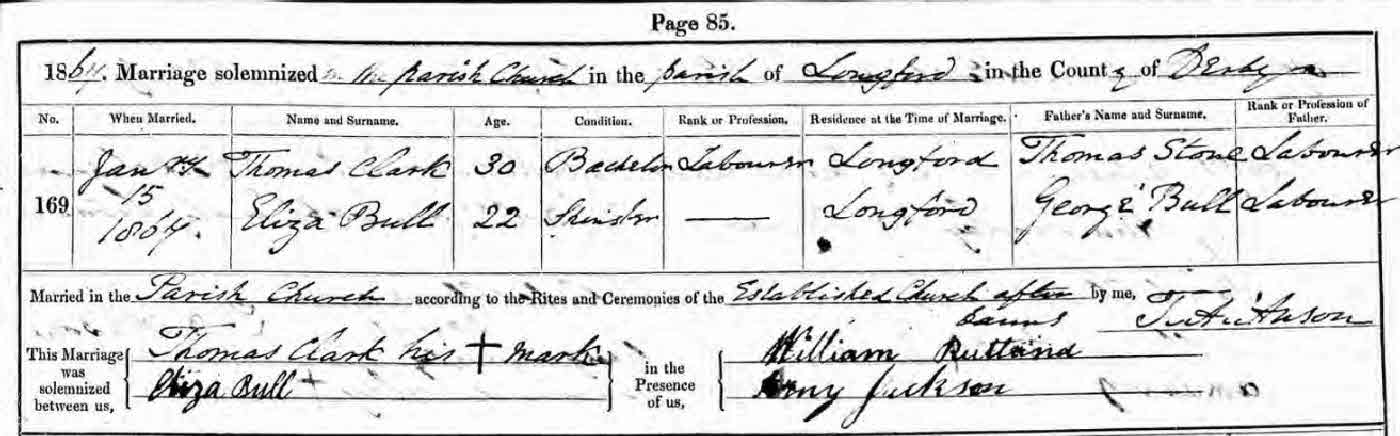 Page 85.
1864. Marriage solemnized in the parish Church in the parish of Longford in the County of Derby
No. When Married. Name and Surname. Age. Condition. Rank or Profession. Residence at the Time of Marriage. Father's Name and Surname. Rank or Profession of Father.
Janry Thomas Clark 30 Bachelor Labourer Longford Thomas Stone Labourer
169 15
1864. Eliza Bull 22 Spinster — Longford George Bull Labourer
Married in the Parish Church according to the Rites and Ceremonies of the Established Church after by me,
banns Anson
This Marriage was solemnized between us, Thomas Clark his + mark in the Presence of us, William Rutland
Eliza Bull Jackson